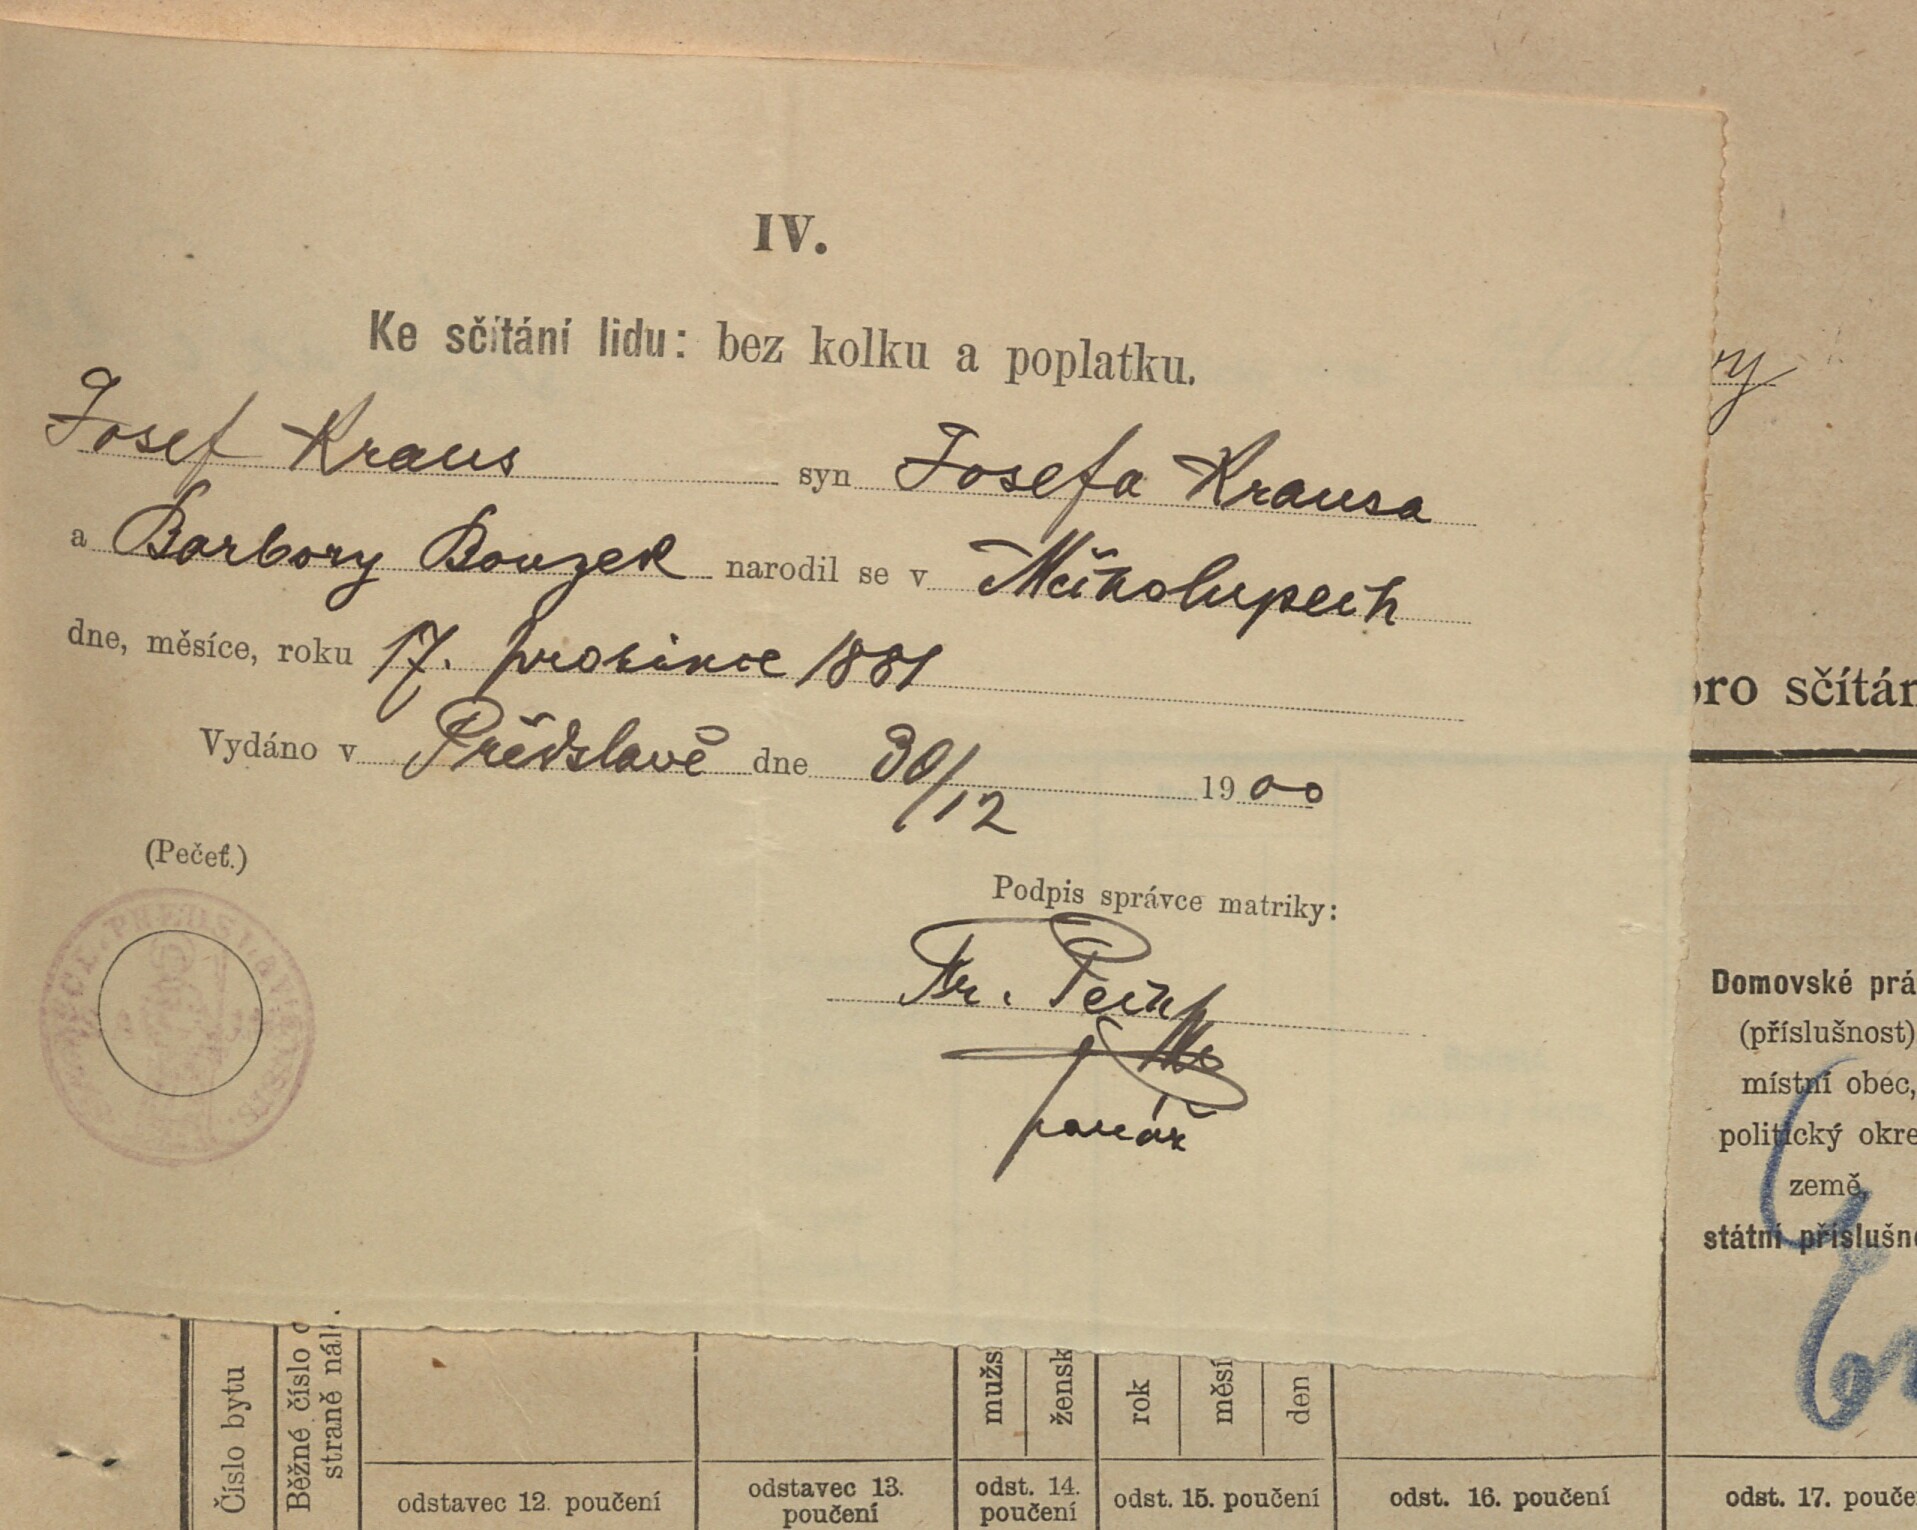 IV.
Ke sčítání lidu: bez kolku a poplatku.
Josef Kraus syn Josefa Krausa
a Barbory Bouzek narodil se v Měcholupech
dne, měsíce, roku 17. prosince 1881
Vydáno v Předslavě dne 30/12 1900
(Pečeť.)
Podpis správce matriky:
Fr. Pech
farář
pro sčítán
Domovské prá
(příslušnost)
místní obec,
politický okre
země,
státní příslušno
Číslo bytu
Běžné číslo o
straně nál
mužs
žensk
rok
měsí
den
odstavec 12. poučení
odstavec 13.
poučení
odst. 14.
poučení
odst. 15. poučení
odst. 16. poučení
odst. 17. pouče